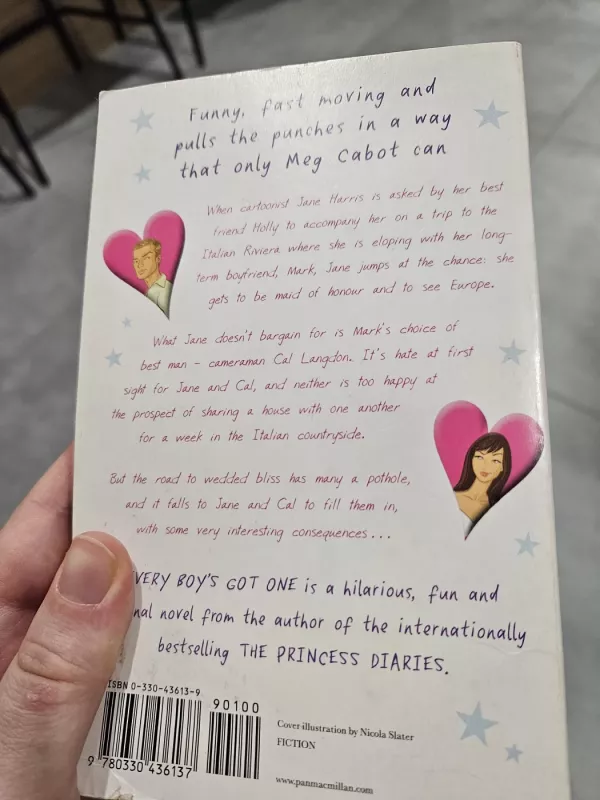 Funny, fast moving and
pulls the punches in a way
that only Meg Cabot can
When cartoonist Jane Harris is asked by her best
friend Holly to accompany her on a trip to the
Italian Riviera where she is eloping with her long-
term boyfriend, Mark, Jane jumps at the chance: she
gets to be maid of honour and to see Europe.
What Jane doesn't bargain for is Mark's choice of
best man – cameraman Cal Langdon. It's hate at first
sight for Jane and Cal, and neither is too happy at
the prospect of sharing a house with one another
for a week in the Italian countryside.
But the road to wedded bliss has many a pothole,
and it falls to Jane and Cal to fill them in,
with some very interesting consequences...
VERY BOY'S GOT ONE is a hilarious, fun and
nal novel from the author of the internationally
bestselling THE PRINCESS DIARIES.
ISBN 0-330-43613-9
90100
9 780330 436137
Cover illustration by Nicola Slater
FICTION
www.panmacmillan.com